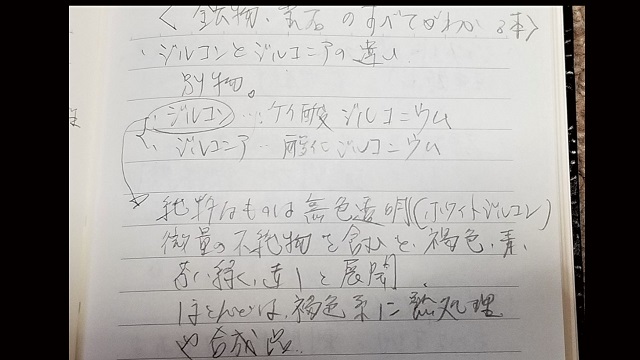 〈鉱物・宝石のすべてがわかる本〉
・ジルコンとジルコニアの違い
別物。
・ジルコン…ケイ酸ジルコニウム
・ジルコニア…酸化ジルコニウム
純粋なものは無色透明(ホワイトジルコン)
微量の不純物を含むと、褐色、青、
緑、赤と展開。
ほとんどは、褐色系に熱処理
や合成品。